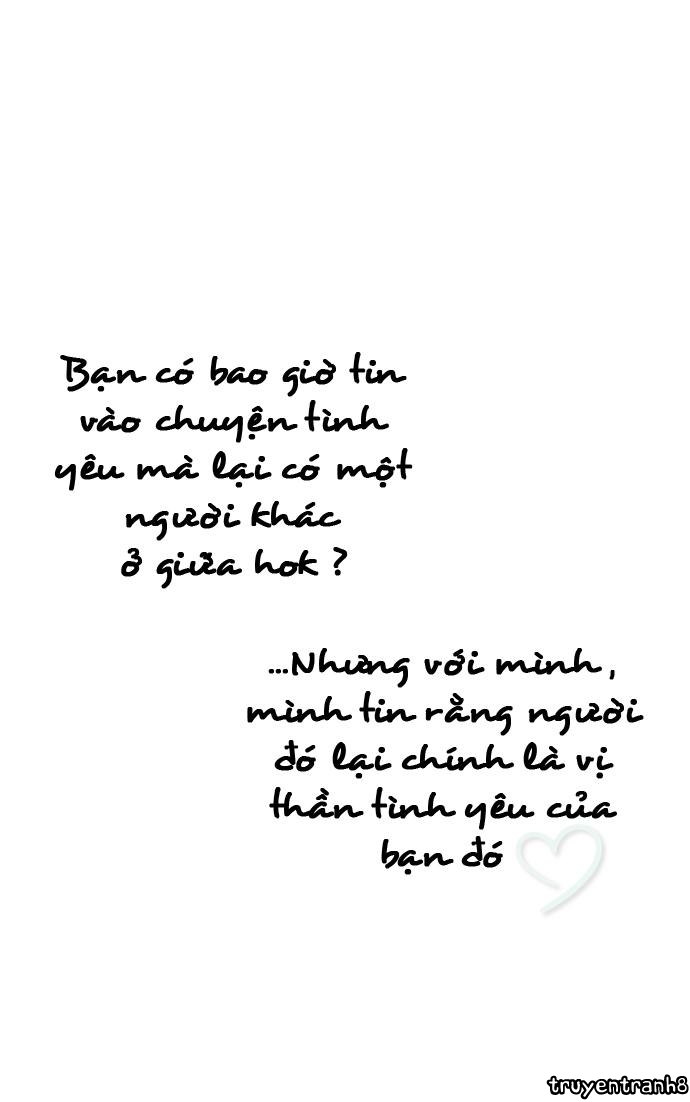 Bạn có bao giờ tin
vào chuyện tình
yêu mà lại có một
người khác
ở giữa hok ?
...Nhưng với mình,
mình tin rằng người
đó lại chính là vị
thần tình yêu của
bạn đó
truyentranh8